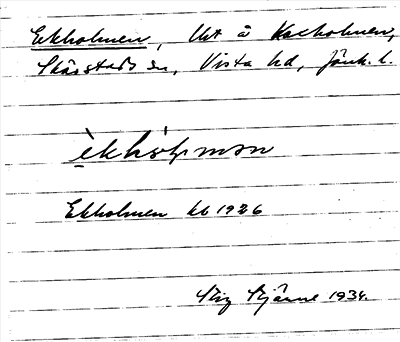 Ekholmen, lht å Kaxholmen,
Skärstads sn, Vista hd, Jönk. l.
èkhòlmən
Ekholmen kb 1926
Stig Stjärne 1934.